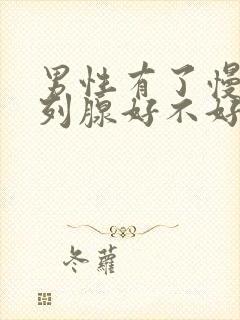 男性有了慢
列腺好不好
冬蘿